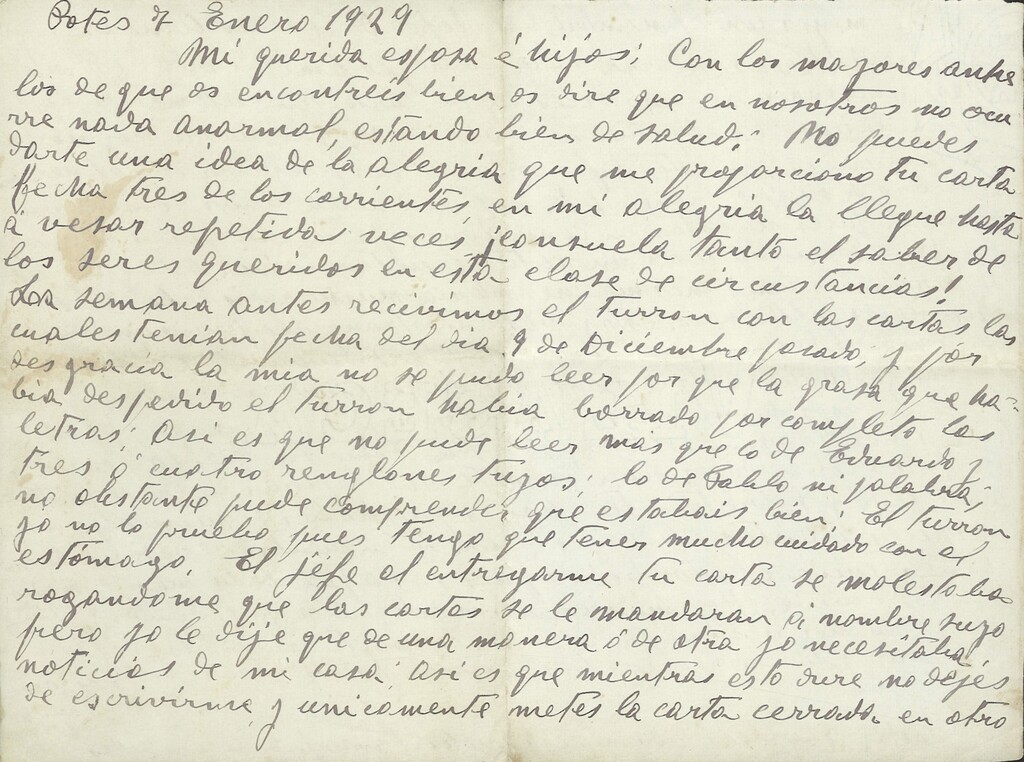 Potes 7 Enero 1929
Mi querida esposa é hijos; Con los mayores anhe
los de que os encontreis bien os dire que en nosotros no ocu
rre nada anormal, estando bien de salud; No puedes
darte una idea de la alegria que me proporciono tu carta
fecha tres de los corrientes, en mi alegria la llegue hasta
á vesar repetidas veces, ¡consuela tanto el saber de
los seres queridos en esta clase de circustancias!
La semana antes recivimos el turron con las cartas las
cuales tenian fecha del dia 9 de Diciembre pasado, y por
desgracia la mia no se pudo leer por que la grasa que ha-
bia despedido el turron habia borrado por completo las
letras; Asi es que no pude leer más que lo de Eduardo y
tres ó cuatro renglones tuyos; lo de Pablo ni palabra;
no obstante pude comprender que estabais bien; El turron
yo no lo pruebo pues tengo que tener mucho cuidado con el
estómago. El jéfe al entregarme tu carta se molestaba
rogandome que las cartas se le mandaran á nombre suyo
pero yo le dije que de una manera ó de otra yo necesitaba
noticias de mi casa; Asi es que mientras esto dure no dejes
de escrivirme, y unicamente metes la carta cerrada en otro